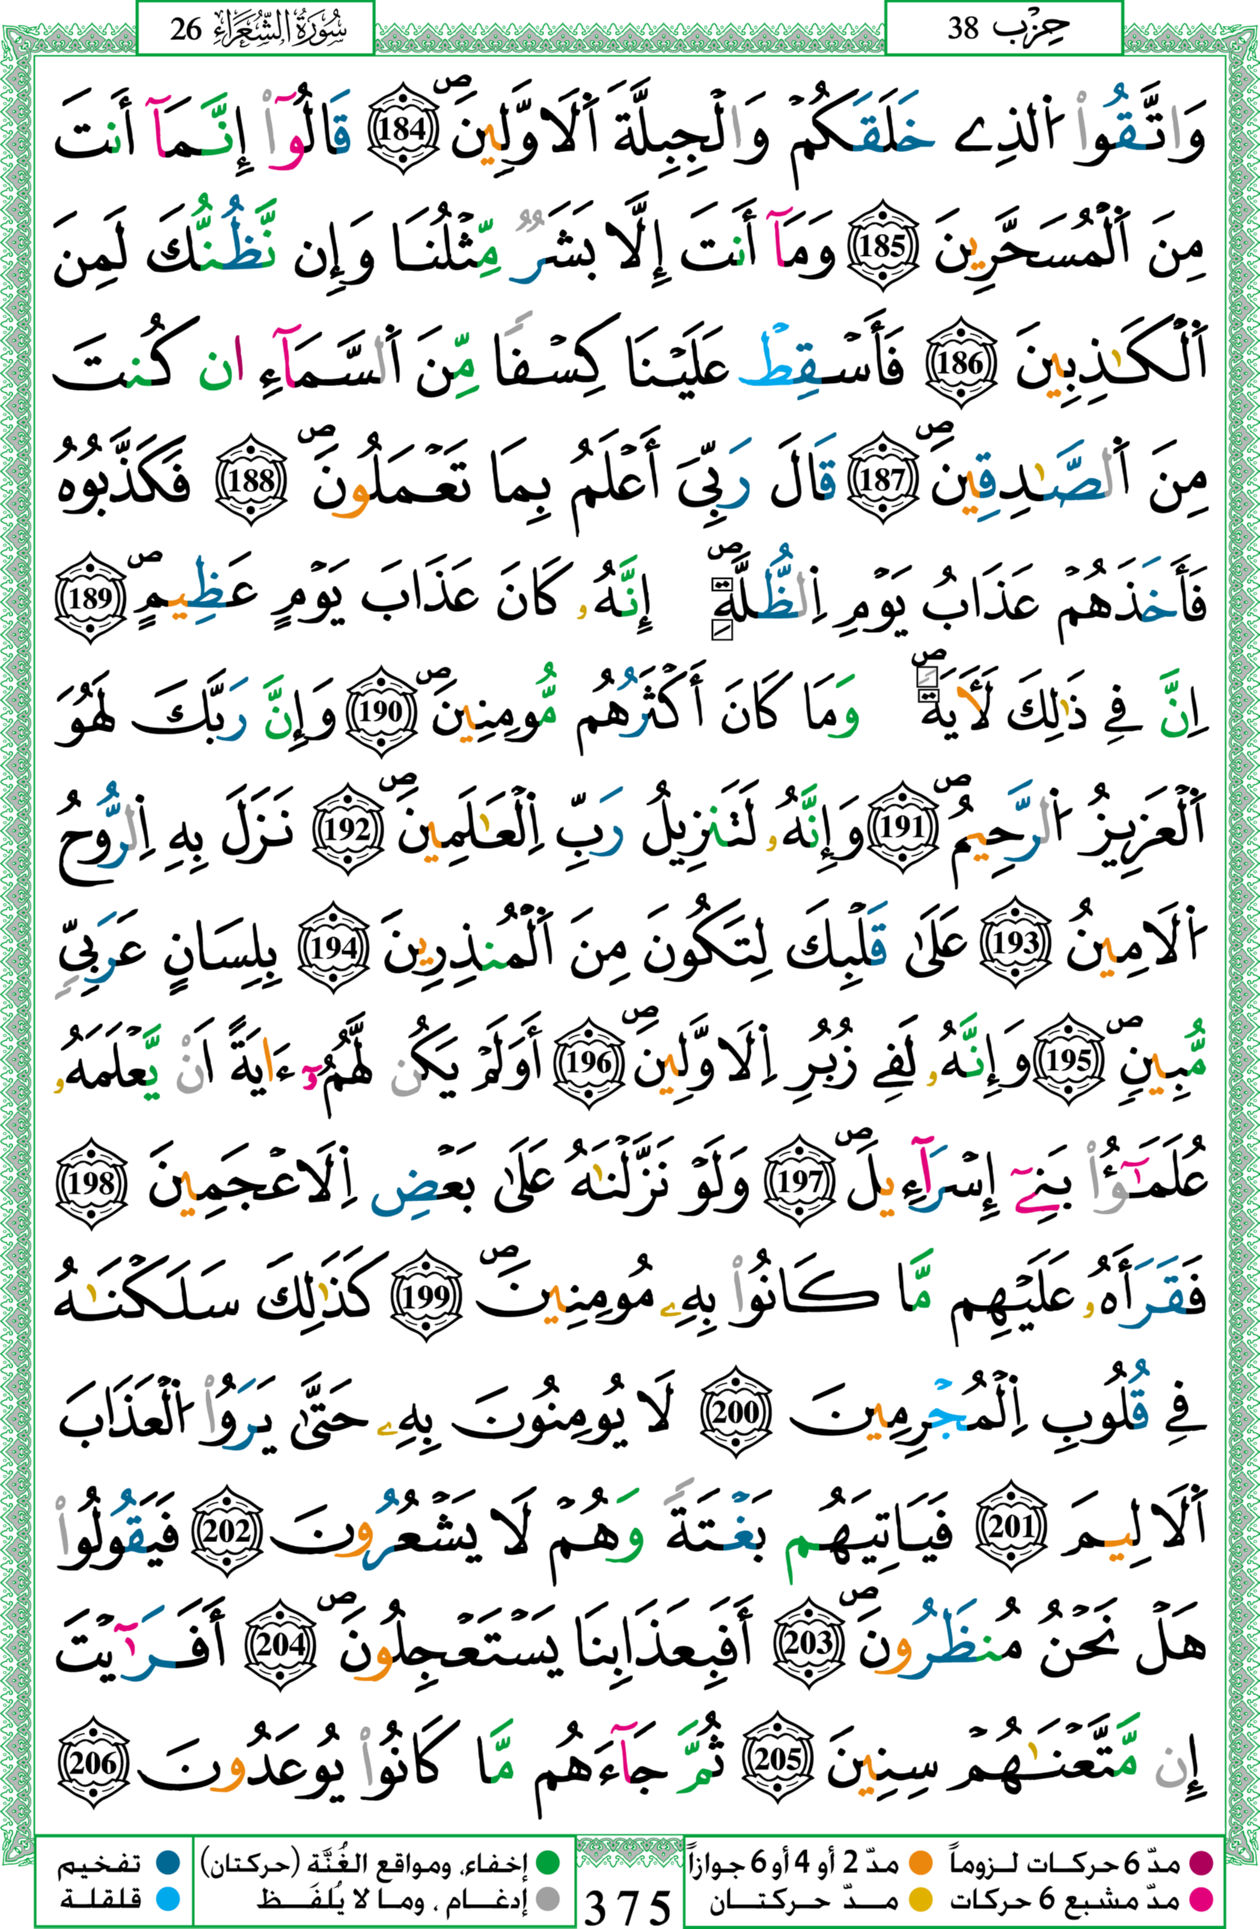 سُورَةُ الشُّعَرَاء 26
حِزْب 38
وَاتَّقُواْ اُ۬لذِے خَلَقَكُمْ وَالْجِبِلَّةَ اَ۬لَاوَّلِينَۖ 184 قَالُوٓاْ إِنَّمَآ أَنتَ
مِنَ اَ۬لْمُسَحَّرِينَ 185 وَمَآ أَنتَ إِلَّا بَشَرٌ مِّثْلُنَا وَإِن نَّظُنُّكَ لَمِنَ
اَ۬لْكَٰذِبِينَ 186 فَأَسْقِطْ عَلَيْنَا كِسْفاً مِّنَ اَ۬لسَّمَآءِ ان كُنتَ
مِنَ اَ۬لصَّٰدِقِينَۖ 187 قَالَ رَبِّيَ أَعْلَمُ بِمَا تَعْمَلُونَۖ 188 فَكَذَّبُوهُ
فَأَخَذَهُمْ عَذَابُ يَوْمِ اِ۬لظُّلَّةِۖ إِنَّهُۥ كَانَ عَذَابَ يَوْمٍ عَظِيمٍۖ 189
اِنَّ فِے ذَٰلِكَ لَأٓيَةٗۖ وَمَا كَانَ أَكْثَرُهُم مُّومِنِينَۖ 190 وَإِنَّ رَبَّكَ لَهُوَ
اَ۬لْعَزِيزُ اُ۬لرَّحِيمُۖ 191 وَإِنَّهُۥ لَتَنزِيلُ رَبِّ اِ۬لْعَٰلَمِينَۖ 192 نَزَلَ بِهِ اِ۬لرُّوحُ
اُ۬لَامِينُ 193 عَلَىٰ قَلْبِكَ لِتَكُونَ مِنَ اَ۬لْمُنذِرِينَ 194 بِلِسَانٍ عَرَبِيّٖ
مُّبِينٖۖ 195 وَإِنَّهُۥ لَفِے زُبُرِ اِ۬لَاوَّلِينَۖ 196 أَوَلَمْ يَكُن لَّهُمُۥٓ ءَايَةً اَنْ يَّعْلَمَهُۥ
عُلَمَٰٓؤُاْ بَنِےٓ إِسْرَآءِيلَۖ 197 وَلَوْ نَزَّلْنَٰهُ عَلَىٰ بَعْضِ اِ۬لَاعْجَمِينَ 198
فَقَرَأَهُۥ عَلَيْهِم مَّا كَانُواْ بِهِۦ مُومِنِينَۖ 199 كَذَٰلِكَ سَلَكْنَٰهُ
فِے قُلُوبِ اِ۬لْمُجْرِمِينَ 200 لَا يُومِنُونَ بِهِۦ حَتَّىٰ يَرَوُاْ اُ۬لْعَذَابَ
اَ۬لَالِيمَ 201 فَيَاتِيَهُم بَغْتَةٗ وَهُمْ لَا يَشْعُرُونَ 202 فَيَقُولُواْ
هَلْ نَحْنُ مُنظَرُونَۖ 203 أَفَبِعَذَابِنَا يَسْتَعْجِلُونَۖ 204 أَفَرَٰٓيْتَ
إِن مَّتَّعْنَٰهُمْ سِنِينَ 205 ثُمَّ جَآءَهُم مَّا كَانُواْ يُوعَدُونَ 206
مدّ 6 حركات لـزوماً مدّ 2 أو 4 أو 6 جوازاً
مدّ مشبع 6 حركات مــدّ حـركتــان
375
إخفاء، ومواقع الغُنَّة (حركتان) تفخيم
إدغــام ، ومـا لا يُلفَــظ قلقلـة